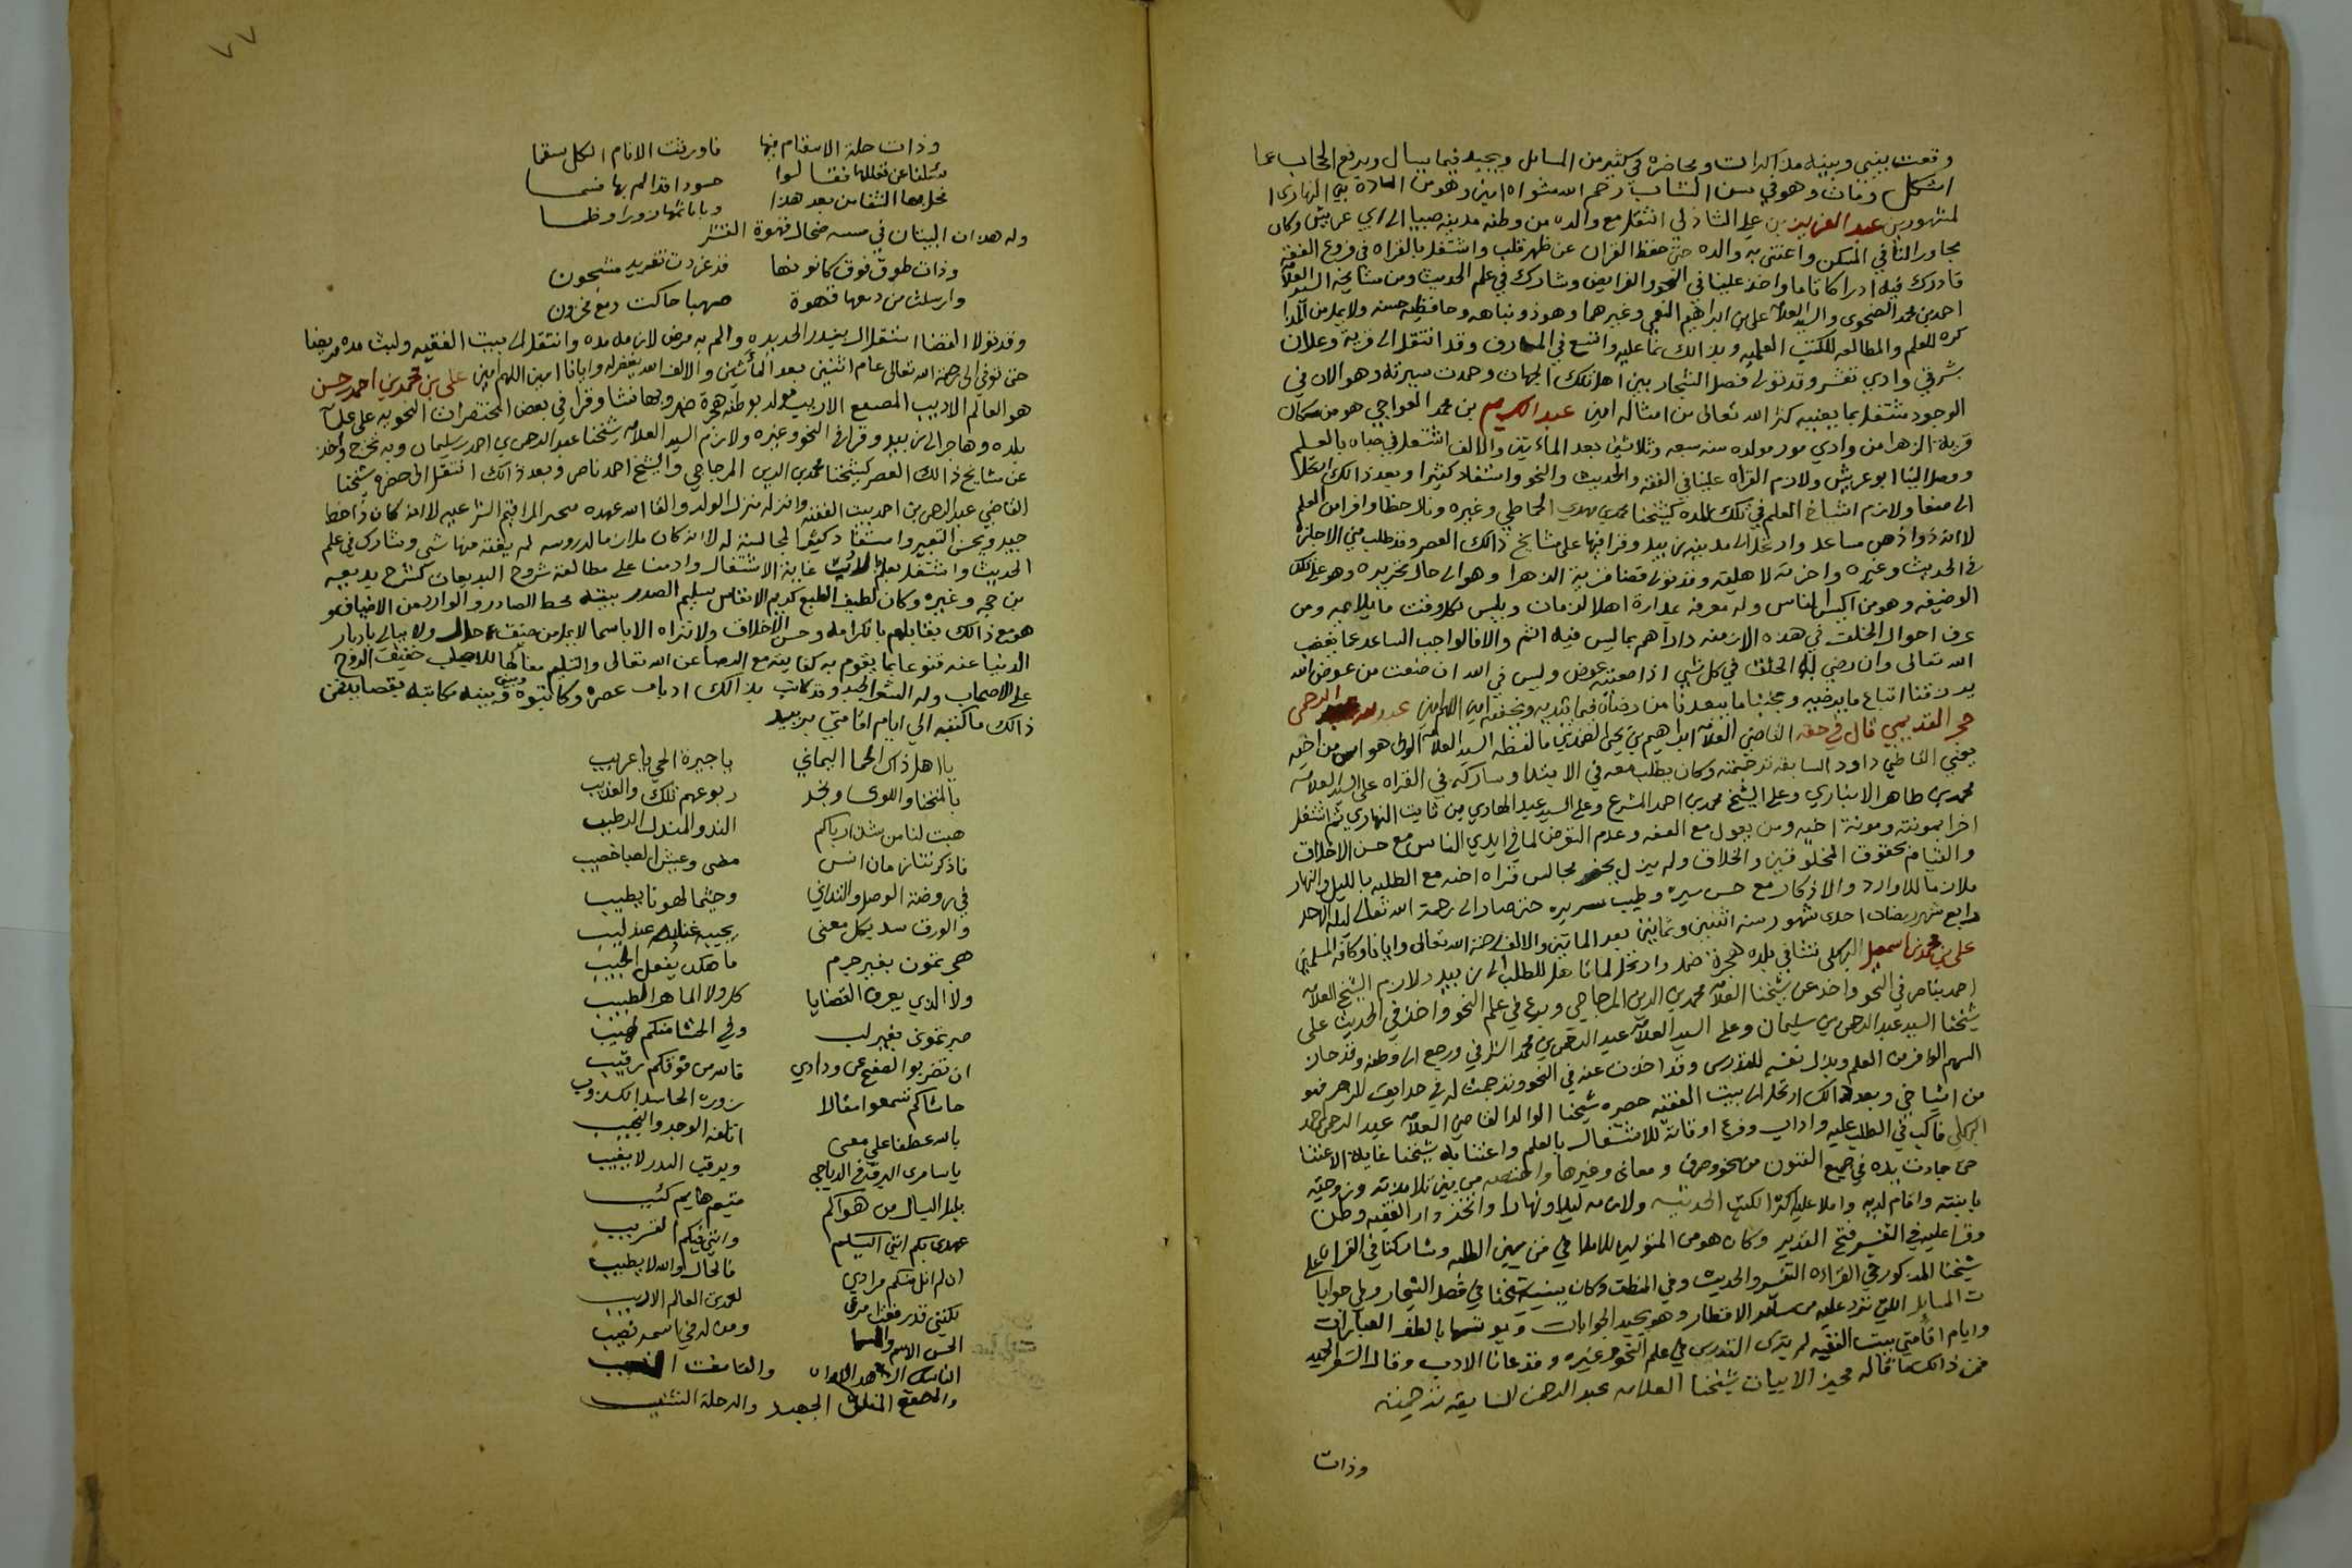 وقعت بيني وبينه مذاكرات ومحاضره في كثير من المسايل ويجيد فيما يسال ويرفع الحجاب عما
اشكل ومات وهو في سن الشباب رحم الله مثواه امين وهو من الساده بني النهاري ا
لمشهورين عبد العزيز بن علي الشاذلي انتقل مع والده من وطنه مدينه صبيا الى ابي عريش وكان
مجاورا لنا في المسكن واعتنى به والده حتى حفظ القران عن ظهر قلب واشتغل بالقراه في فروع الفقه
فادرك فيه ادراكا تاما واخذ علينا في النحو والفرايض وشارك في علم الحديث ومن مشايخه السيد العلامه
احمد بن محمد الضحوي والسيد العلامه علي بن ابراهيم النعمي وغيرهما وهو ذو نباهه وحافظيه حسنه ولا يمل من المذا
كره للعلم والمطالعه للكتب العلميه وبذالك نما عليه واتسع في المعارف وقد انتقل الى قرية وعلان
شرقي وادي تعشر وقد تولى فصل الشجار بين اهل تلك الجهات وحمدت سيرته وهو الان في
الوجود مشتغل بما يعنيه كثر الله تعالى من امثاله امين عبد الكريم بن محمد العواجي هو من سكان
قرية الزهرا من وادي مور مولده سنه سبعه وثلاثين بعد المائتين والالف اشتغل في صباه بالعلم
ووصل الينا ابو عريش ولازم القراه علينا في الفقه والحديث والنحو واستفاد كثيرا وبعد ذالك ارتحل
الى صنعا ولازم اشياخ العلم في تلك المده كشيخنا محمد بن مهدي الحماطي وغيره ونال حظا وافرا من العلم
لانه ذو ذهن مساعد وارتحل الى مدينه زبيد وقرا فيها على مشايخ ذالك العصر وقد طلب مني الاجازه
في الحديث وغيره واجزته لاهليته وقد تولى قضا قرية الزهرا وهو الى حال تحريره وهو على تلك
الوضيفه وهو من اكيس الناس وله معرفه بمدارة اهل الزمان ويلبس لكل وقت ما يلايمه ومن
عرف احوال الخلق في هذه الازمنه داراهم بما ليس فيه اثم والا فالواجب التباعد عما يغضب
الله تعالى وان رضي به الخلق في كل شي اذا ضيعته عوض وليس في الله ان ضيعت من عوض الله
يرزقنا اتباع ما يرضيه ويجنبنا ما يبعدنا من رضاه فيما نبديه ونخفيه امين اللهم امين عبد الرحمن
القديمي قال في حقه القاضي العلامه ابراهيم بن يحيى الضمدي ما لفظه السيد العلامه الولي هو اسن من اخيه
يعني القاضي داود السابقه ترجمته وكان يطلب معه في الابتدا وشاركه في القراه على السيد العلامه
محمد بن طاهر الانباري وعلى الشيخ محمد بن احمد المشرع وعلى السيد عبد الهادي بن ثابت النهاري ثم اشتغل
اخرا بمونته ومونة اخيه ومن يعول مع العفه وعدم التعرض لما في ايدي الناس مع حسن الاخلاق
والقيام بحقوق المخلوقين والخلاق ولم يزل يحضر مجالس قراه اخيه مع الطلبه بالليل والنهار
ملازما للاوارد والاذكار مع حسن سيره وطيب سريره حتى صار الى رحمة الله تعالى ليلة الاحد
رابع شهر رمضان احدى شهور سنه اثنين وثمانين بعد المائتين والالف رحمه الله تعالى وايانا وكافة المسلمين
علي بن محمد بن اسمعيل البهكلي نشا في بلده هجرة ضمد وارتحل لما تاهل للطلب الى زبيد ولازم الشيخ العلامه
احمد بناصر في النحو واخذ عن شيخنا العلامه محمد بن الزين المزجاجي وبرع في علم النحو واخذ في الحديث على
شيخنا السيد عبد الرحمن بن سليمان وعلى السيد العلامه عبد الرحمن بن محمد الشرفي ورجع الى وطنه وقد حاز
السهم الوافر من العلم وبذل نفسه للتدريس وقد اخذت عنه في النحو وترجمت له في حدايق الزهر فهو
من اشياخي وبعد ذالك ارتحل الى بيت الفقيه حضره شيخنا الوالد القاضي العلامه عبد الرحمن بن احمد
البهكلي فاكب في الطلب عليه واداب وفرغ اوقاته للاشتغال بالعلم واعتنا به شيخنا غاية الاعتنا
حتى جادت يده في جميع الفنون من نحو وصرف ومعاني وغيرها واختصه من بين تلامذته وزوجه
بابنته واقام لديه واملا عليه اكثر الكتب الحديثيه ولازمه ليلا ونهارا واتخذ دار الفقيه وطن
وقرا عليه في التفسير فتح القدير وكان هو من المتولين للاملا في من بين الطلبه وشاركنا في القراه على
شيخنا المذكور في القراءه التفسير والحديث وفي المنطق وكان يستنيبه شيخنا في فصل الشجار وعلى جوابا
ت المسايل التي ترد عليه من ساير الاقطار وهو يجيد الجوابات ويوشيها بالطف العبارات
وايام اقامتي ببيت الفقيه لم يترك التدريس في علم النحو وغيره وقد عانا الادب وقال الشعر الجيد
فمن ذالك ما قاله مجيز الابيات شيخنا العلامه عبد الرحمن السابقه ترجمته
وذات
٧٧
وذات حلة الاسقام فيها فاورثت الانام الكل سقما
سئلنا عن نقلها فقالوا حسودا قد الم بها
نحل بها الشفا من بعد هذا
وله هذان البيتان في قهوة القشر
وذات طوق فوق كانونها قد غردت تغريد مشجون
وارسلت من دمعها قهوة صهبا حاكت دمع محزون
وقد تولا القضا استقلالا ببندر الحديده والم به مرض لازمه مده وانتقل الى بيت الفقيه ولبث مده مريضا
حتى توفي الى رحمة الله تعالى عام اثنين بعد المأتين والالف الله يغفر له وايانا امين اللهم امين علي بن محمد بن احمد بن حسن
هو العالم الاديب المصقع الاريب مولده بوطنه هجرة ضمد وبها نشا وقرا في بعض المختصرات النحويه على علما
بلده وهاجر الى زبيد وقرا في النحو وغيره ولازم السيد العلامه شيخنا عبد الرحمن بن احمد بن سليمان وبه تخرج واخذ
عن مشايخ ذالك العصر كشيخنا محمد بن الزين المزجاجي والشيخ احمد ناصر وبعد ذالك انتقل الى حضرة شيخنا
القاضي عبد الرحمن بن احمد ببيت الفقيه وانزله منزلة الولد والقا اليه عهده تحرير المراقيم الشرعيه لانه كان ذا خط
جيد ويحسن التعبير واستفاد كثيرا لمجالسته له لانه كان ملازما لدروسه لم يفته منها شي وشارك في علم
الحديث واشتغل بعلم الادب غاية الاشتغال وادمن على مطالعة شروح البديعيات كشرح بديعيه
بن حجه وغيره وكان لطيف الطبع كريم الانفاس سليم الصدر بيته محط الصادر والوارد من الاضياف
هو مع ذالك يقابلهم بالكرامه وحسن الاخلاق ولا تراه الا باسما لا يمل من ضيف حال ولا يبالي بادبار
الدنيا عنه قنوعا بما يقوم به كفايته مع الرضا عن الله تعالى والتسليم خفيف الروح
على الاصحاب وله الشعر الجيد وقد كاتب بذالك ادباء عصره وكاتبوه وبيني وبينه مكاتبه بقصايد فمن
ذالك ما كتبه الي ايام اقامتي بزبيد
يا اهل ذاك الحما اليماني يا جيرة الحي يا عريب
بالمنحنا واللوى ونجد ربوعهم تلك والعذيب
هبت لنا من شذا رباكم الند والمندل الرطيب
فاذكرتنا زمان انس مضى وعيش الصبا خصيب
في روضة الوصل والتداني وحيثما لهونا يطيب
والورق بكل معنى يجيب عندليب
هجرتمون بغير جرم ما هكذا يفعل الحبيب
ولا الذي يعرف القضايا كلا ولا الماهر الطبيب
صبرتموني بغير لب وفي الحشا منكم لهيب
ان تضربوا الصفح عن ودادي فالله من فوقكم رقيب
حاشاكم تسمعوا مقالا زوره الحاسد الكذوب
بالله عطفا على معنى اتلفه الوجد والنحيب
يا سامري البرق في الدياجي ويرقب البدر لا يغيب
بلبل البال من هواكم متيم هايم كئيب
عهدي بكم انني السليم وانني فيكم الغريب
ان لم انل منكم مرادي فالحال والله لا يطيب
لكنني قد رفعت امري لعمدتي العالم الاديب
الحسن الاسم ومن له في اسمه نصيب
الناسك والقانت
والمصقع المفلق الجهبذ والرحلة